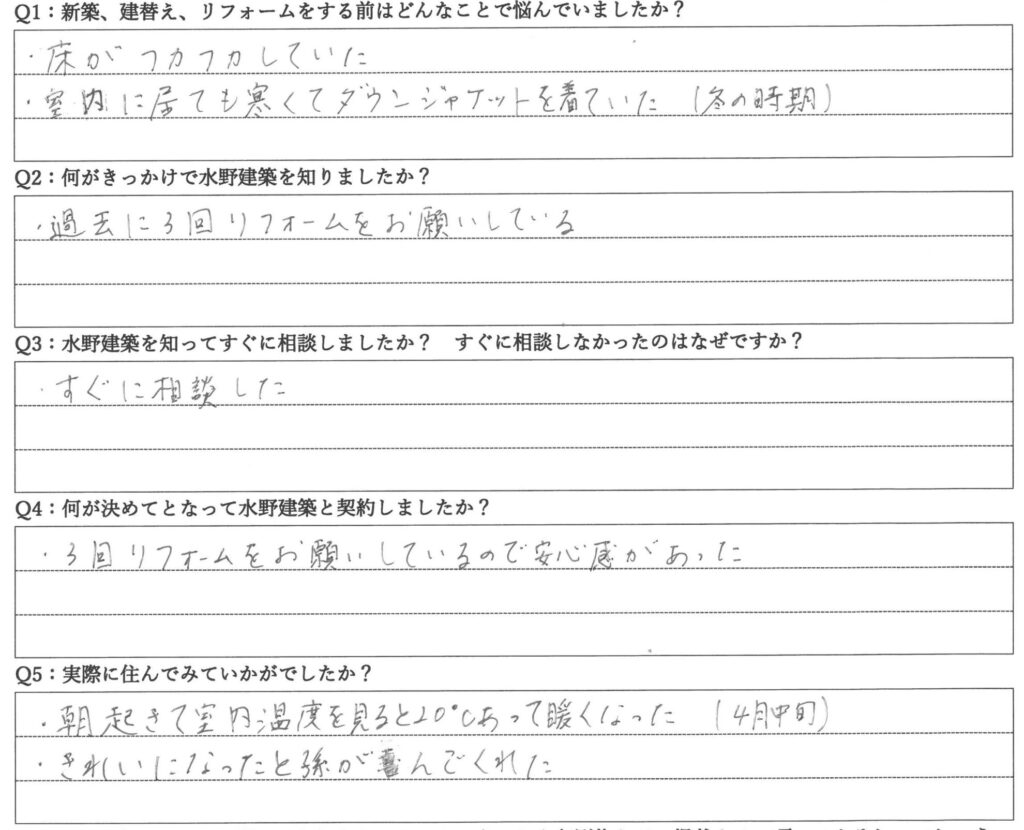 Q1：新築、建替え、リフォームをする前はどんなことで悩んでいましたか？
・床がフカフカしていた
・室内に居ても寒くてダウンジャケットを着ていた（冬の時期）
Q2：何がきっかけで水野建築を知りましたか？
・過去に3回リフォームをお願いしている
Q3：水野建築を知ってすぐに相談しましたか？　すぐに相談しなかったのはなぜですか？
・すぐに相談した
Q4：何が決めてとなって水野建築と契約しましたか？
・3回リフォームをお願いしているので安心感があった
Q5：実際に住んでみていかがでしたか？
・朝起きて室内温度を見ると20℃あって暖くなった（4月中旬）
・きれいになったと孫が喜んでくれた